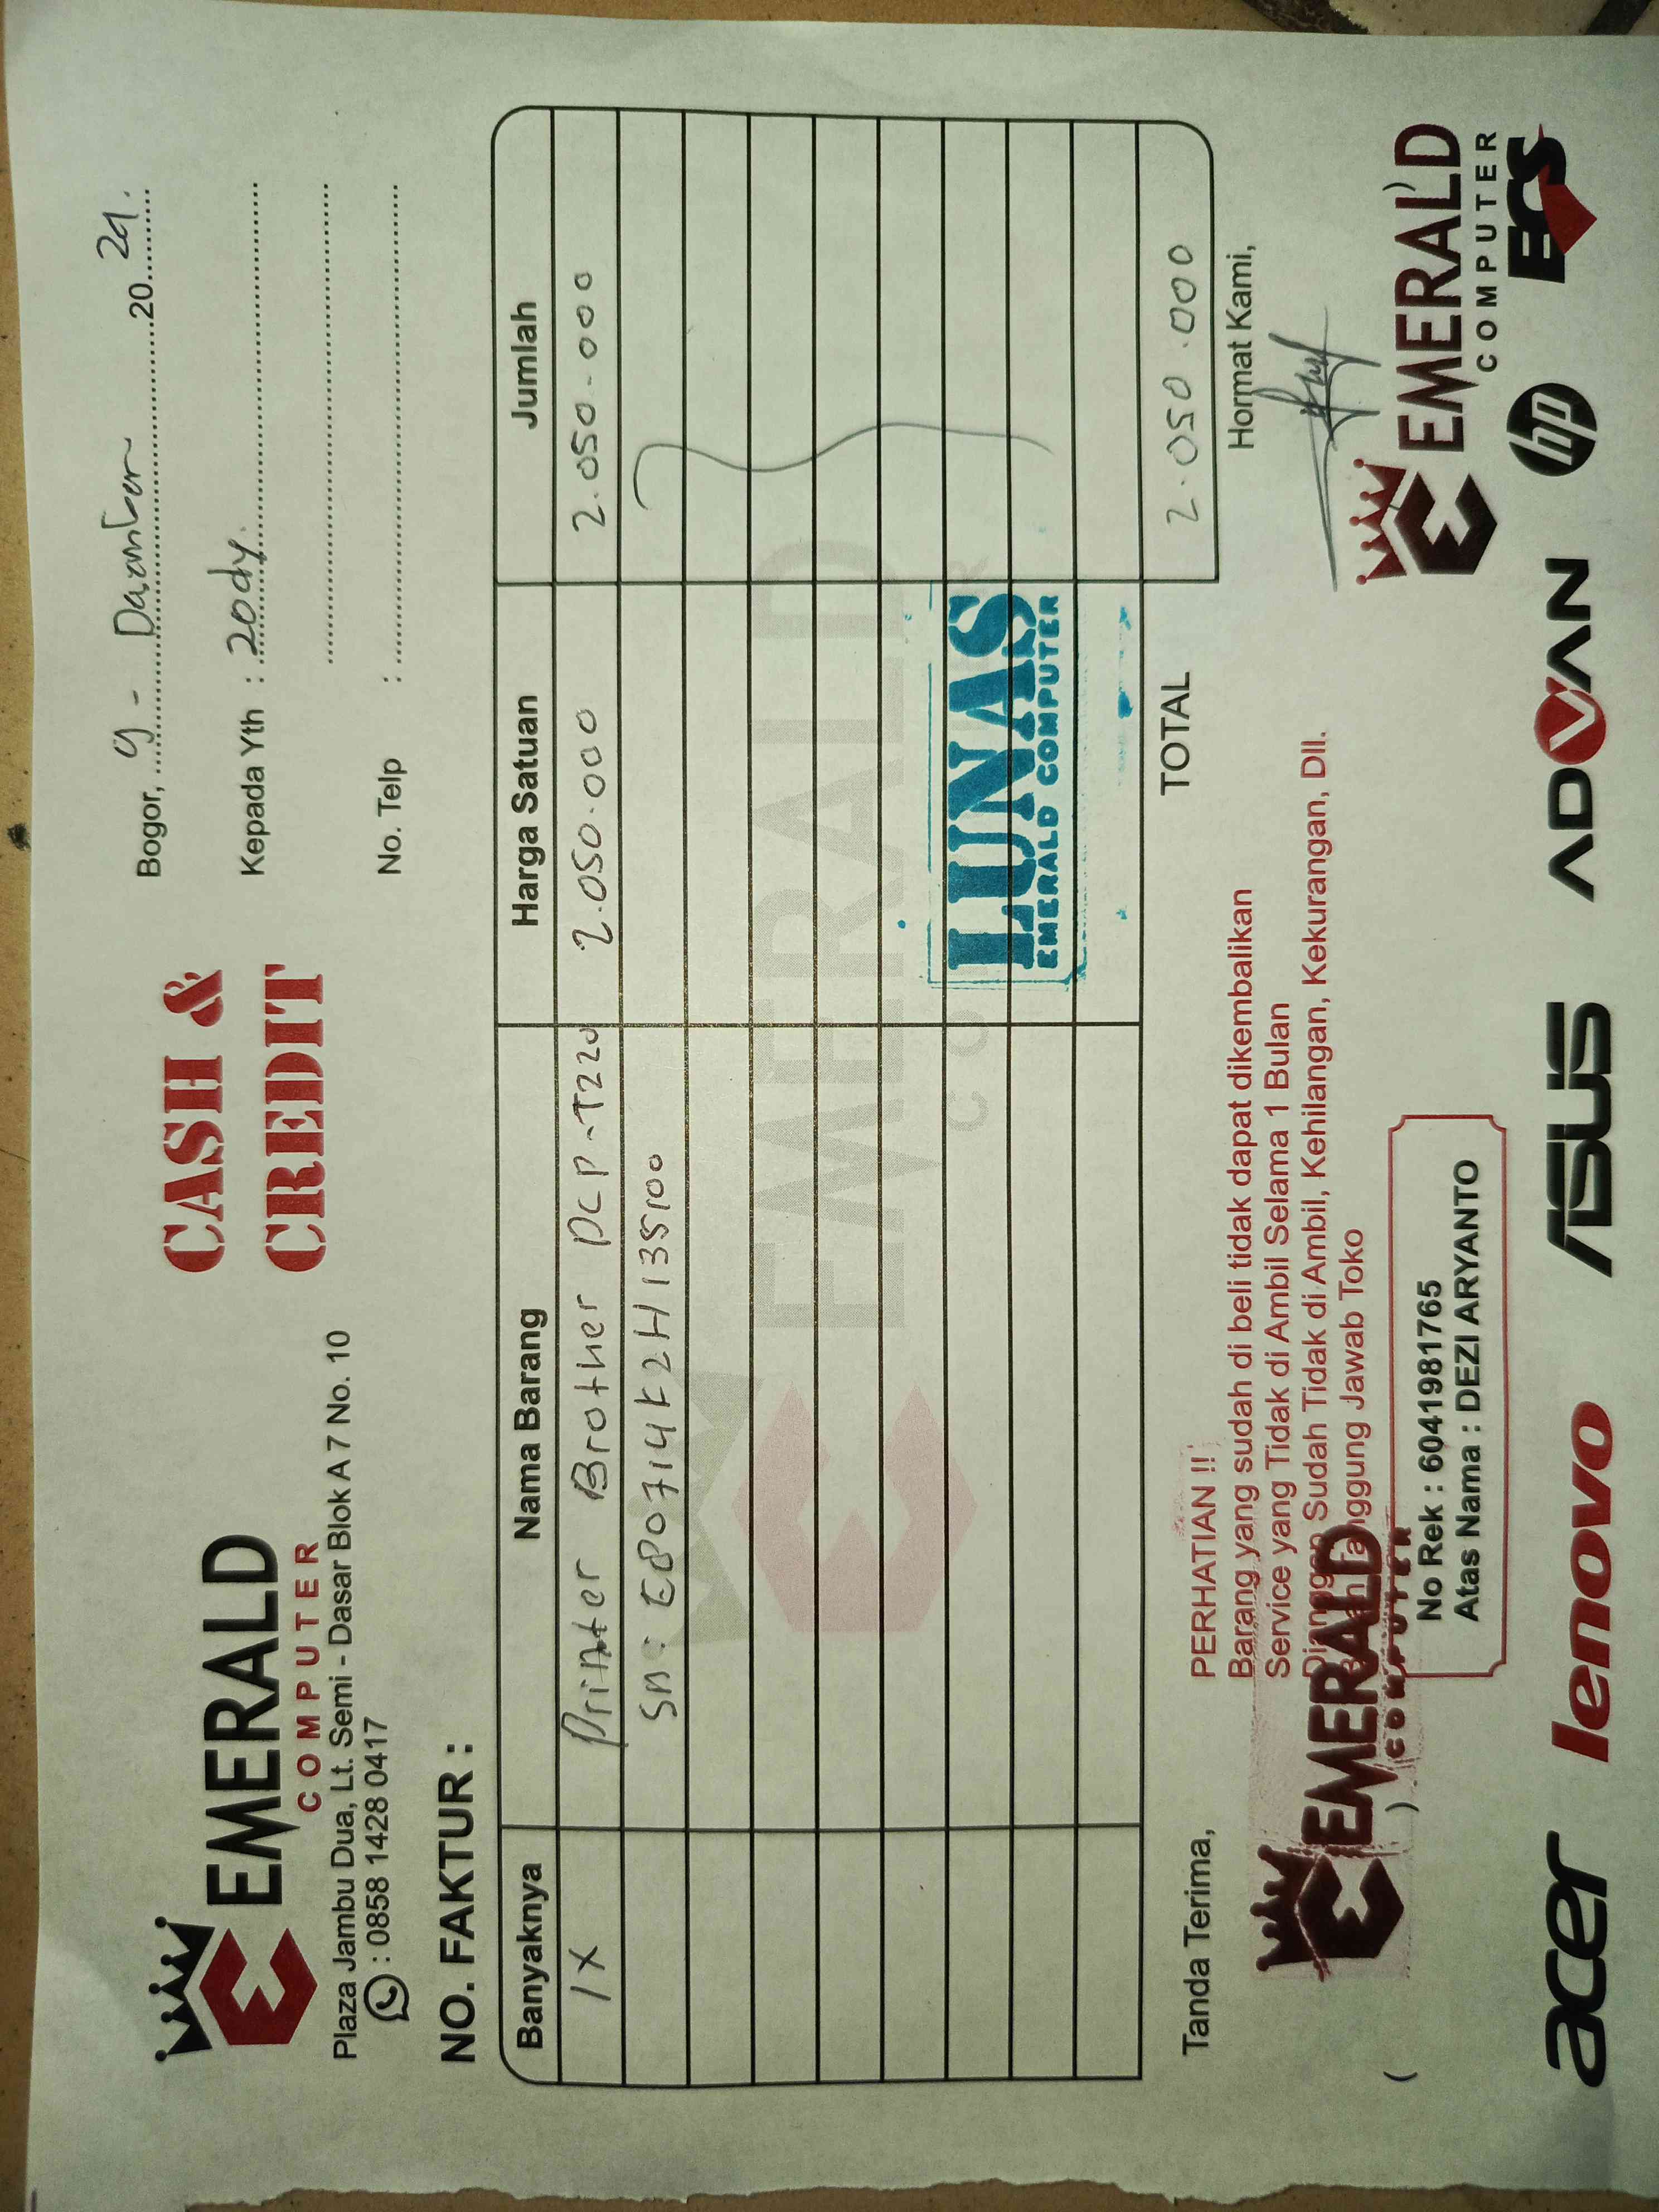 EMERALD
COMPUTER
Plaza Jambu Dua, Lt. Semi - Dasar Blok A 7 No. 10
: 0858 1428 0417
CASH &
CREDIT
Bogor, 9 - 20 24.
Kepada Yth : zody.
No. Telp :
NO. FAKTUR :
Banyaknya Nama Barang Harga Satuan Jumlah
1X Printer Brother DCP-T220 2.050.000 2.050.000
SN: E80714K2H135100
EMERALD
LUNAS
EMERALD COMPUTER
TOTAL 2.050.000
Tanda Terima,
PERHATIAN !!
Barang yang sudah di beli tidak dapat dikembalikan
Service yang Tidak di Ambil Selama 1 Bulan
Dianggap Sudah Tidak di Ambil, Kehilangan, Kekurangan, Dll.
Bukan Tanggung Jawab Toko
Hormat Kami,
EMERALD
COMPUTER
( )
No Rek : 6041981765
Atas Nama : DEZI ARYANTO
EMERALD
COMPUTER
acer lenovo ASUS ADVAN hp ECS